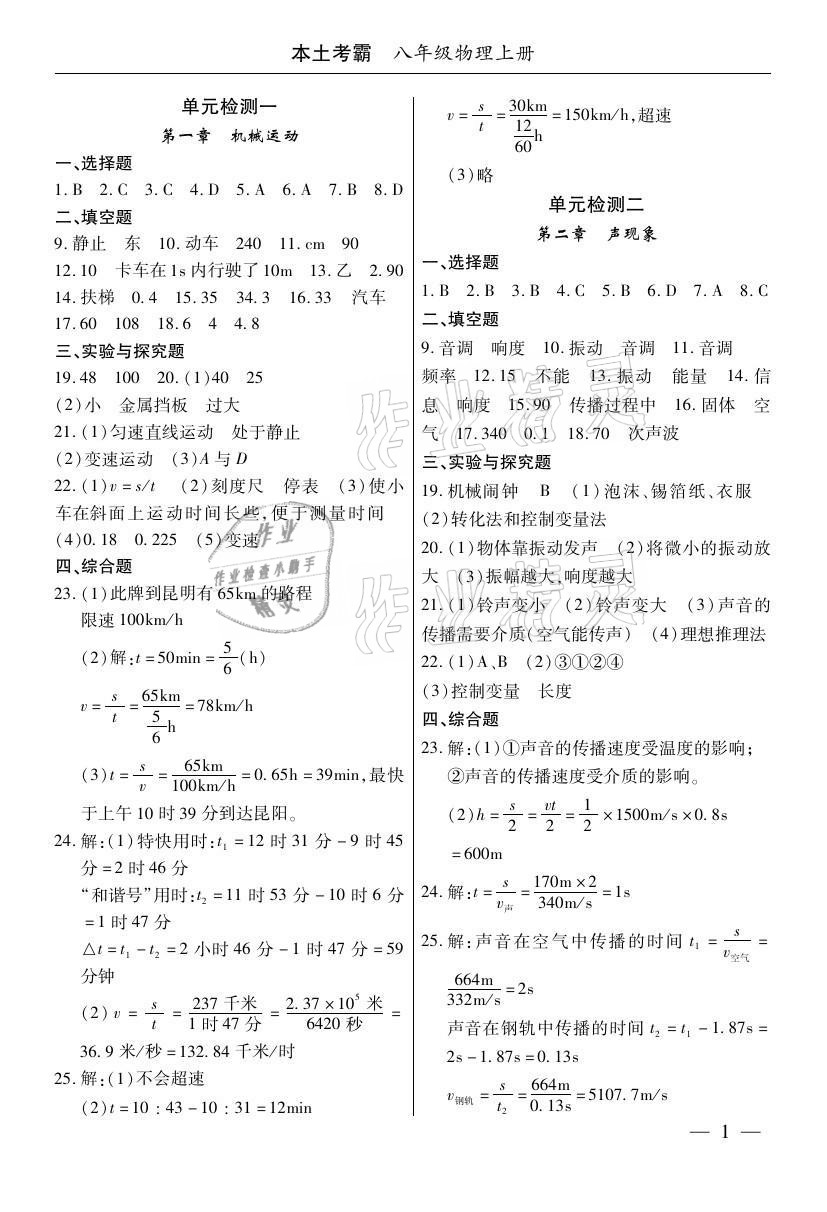 本土考霸 八年级物理上册
单元检测一
第一章 机械运动
一、选择题
1.B 2.C 3.C 4.D 5.A 6.A 7.B 8.D
二、填空题
9.静止 东 10.动车 240 11.cm 90
12.10 卡车在1s内行驶了10m 13.乙 2.90
14.扶梯 0.4 15.35 34.3 16.33 汽车
17.60 108 18.6 4 4.8
三、实验与探究题
19.48 100 20.(1)40 25
(2)小 金属挡板 过大
21.(1)匀速直线运动 处于静止
(2)变速运动 (3)A与D
22.(1)v=s/t (2)刻度尺 停表 (3)使小
车在斜面上运动时间长些,便于测量时间
(4)0.18 0.225 (5)变速
四、综合题
23.(1)此牌到昆明有65km的路程
限速100km/h
(2)解:t=50min=5/6(h)
v=s/t=65km/(5/6 h)=78km/h
(3)t=s/v=65km/100km/h=0.65h=39min,最快
于上午10时39分到达昆阳。
24.解:(1)特快用时:t₁=12时31分-9时45
分=2时46分
“和谐号”用时:t₂=11时53分-10时6分
=1时47分
△t=t₁-t₂=2小时46分-1时47分=59
分钟
(2)v=s/t=237千米/1时47分=2.37×10⁵米/6420秒=
36.9米/秒=132.84千米/时
25.解:(1)不会超速
(2)t=10:43-10:31=12min
v=s/t=30km/(12/60 h)=150km/h,超速
(3)略
单元检测二
第二章 声现象
一、选择题
1.B 2.B 3.B 4.C 5.B 6.D 7.A 8.C
二、填空题
9.音调 响度 10.振动 音调 11.音调
频率 12.15 不能 13.振动 能量 14.信
息 响度 15.90 传播过程中 16.固体 空
气 17.340 0.1 18.70 次声波
三、实验与探究题
19.机械闹钟 B (1)泡沫、锡箔纸、衣服
(2)转化法和控制变量法
20.(1)物体靠振动发声 (2)将微小的振动放
大 (3)振幅越大,响度越大
21.(1)铃声变小 (2)铃声变大 (3)声音的
传播需要介质(空气能传声) (4)理想推理法
22.(1)A、B (2)③①②④
(3)控制变量 长度
四、综合题
23.解:(1)①声音的传播速度受温度的影响;
②声音的传播速度受介质的影响。
(2)h=s/2=vt/2=1/2×1500m/s×0.8s
=600m
24.解:t=s/v声=170m×2/340m/s=1s
25.解:声音在空气中传播的时间t₁=s/v空气=
664m/332m/s=2s
声音在钢轨中传播的时间t₂=t₁-1.87s=
2s-1.87s=0.13s
v钢轨=s/t₂=664m/0.13s=5107.7m/s
— 1 —
作业精灵
作业精灵
作业
作业检查小助手
精灵